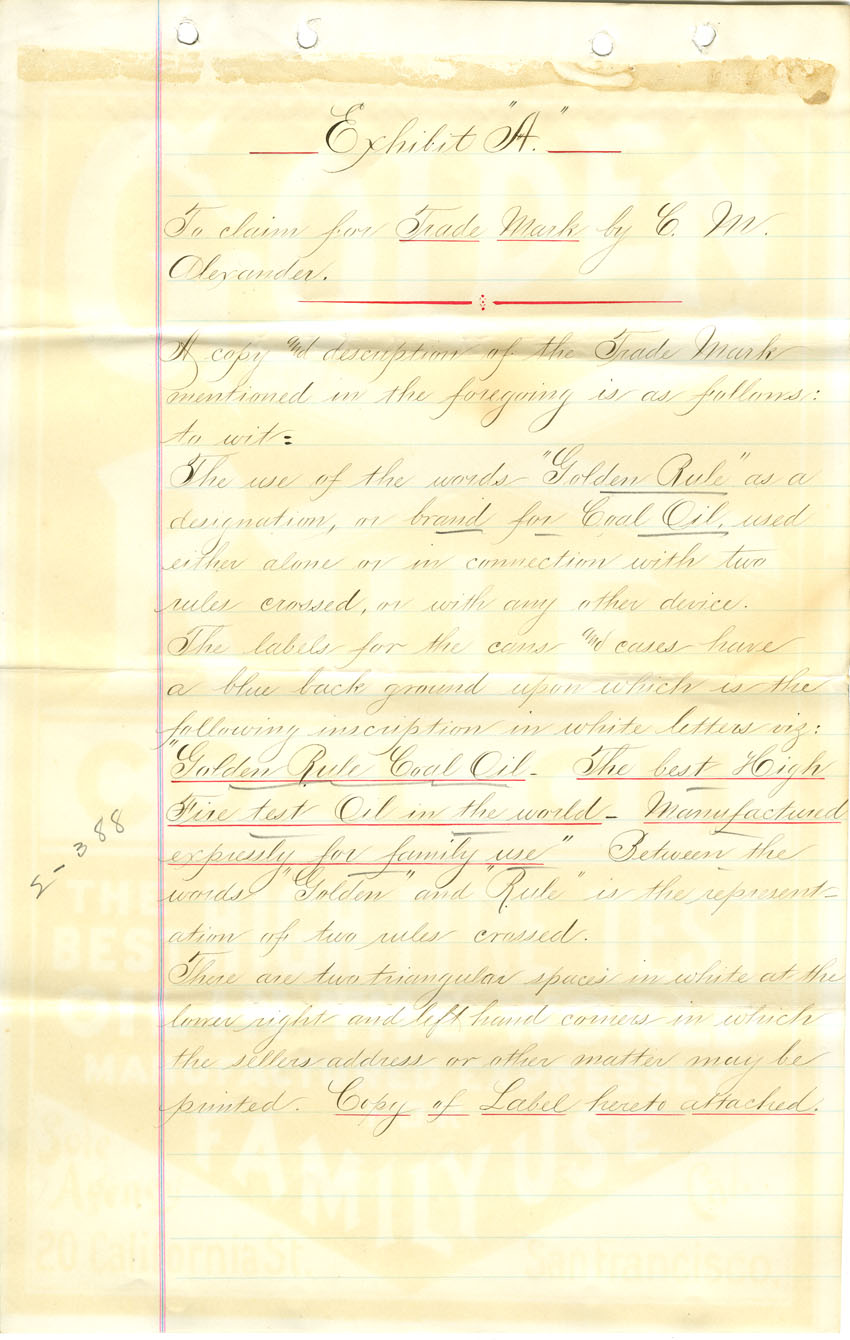 Exhibit "A."
To claim for Trade Mark by C. M.
Alexander.
A copy and description of the Trade Mark
mentioned in the foregoing is as follows:
to wit:
The use of the words "Golden Rule" as a
designation, or brand for Coal Oil, used
either alone or in connection with two
rules crossed, or with any other device.
The labels for the cans and cases have
a blue back ground upon which is the
following inscription in white letters viz:
"Golden Rule Coal Oil - The best High
Fire test Oil in the world - Manufactured
expressly for family use" Between the
words "Golden" and "Rule" is the represent-
ation of two rules crossed.
There are two triangular spaces in white at the
lower right and left hand corners in which
the sellers address or other matter may be
printed. Copy of Label hereto attached.
388
THE
BES
FAMILY USE
20 California St.
San Francisco